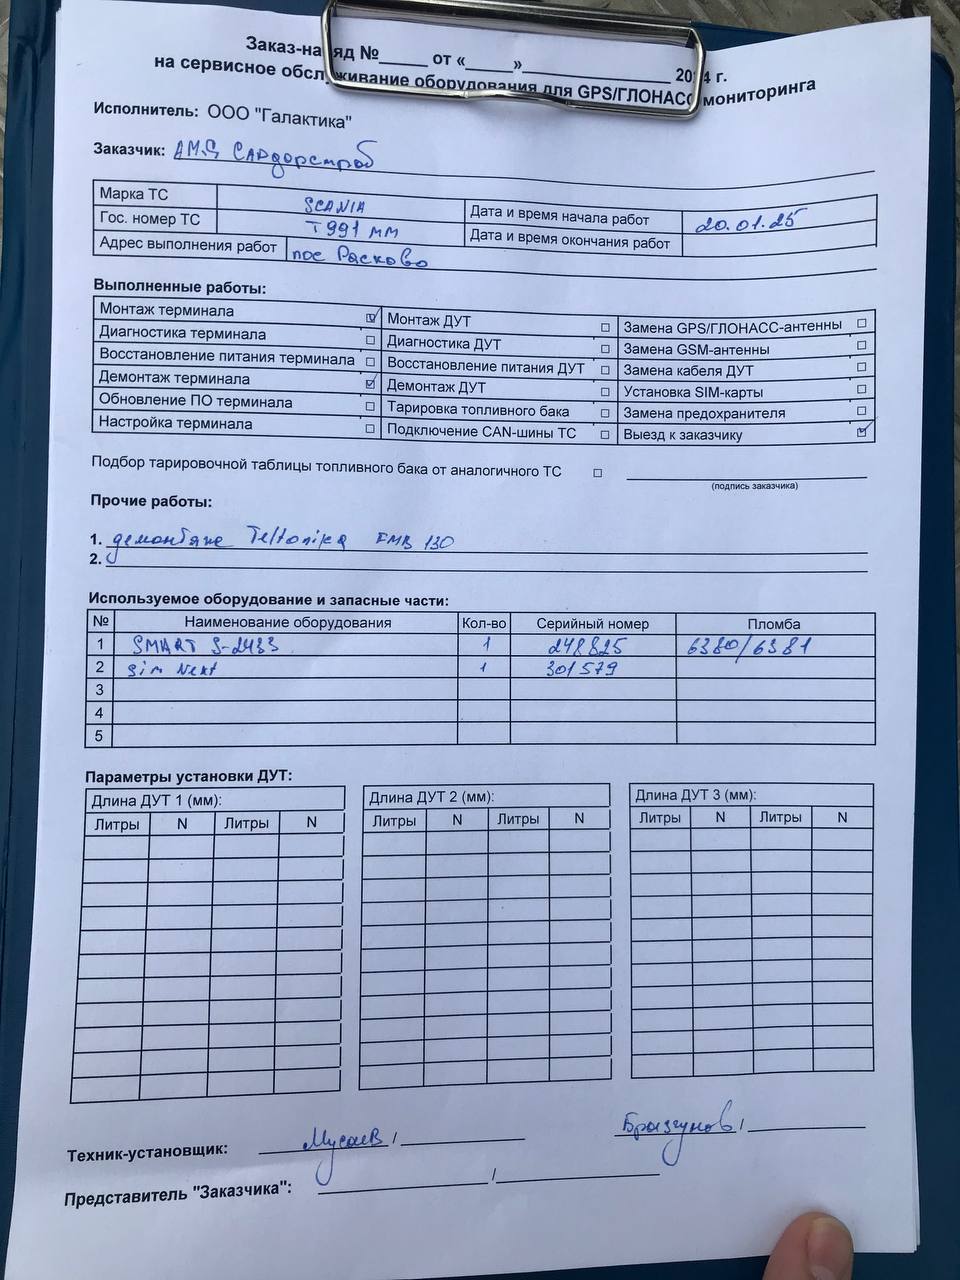 Заказ-наряд №_____ от «_____»_______________ 2024 г.
на сервисное обслуживание оборудования для GPS/ГЛОНАСС мониторинга
Исполнитель: ООО "Галактика"
Заказчик:
Марка ТС SCANIA Дата и время начала работ 20.01.25
Гос. номер ТС Т991ММ Дата и время окончания работ
Адрес выполнения работ пос Расково
Выполненные работы:
Монтаж терминала ☑ Монтаж ДУТ ☐ Замена GPS/ГЛОНАСС-антенны ☐
Диагностика терминала ☐ Диагностика ДУТ ☐ Замена GSM-антенны ☐
Восстановление питания терминала ☐ Восстановление питания ДУТ ☐ Замена кабеля ДУТ ☐
Демонтаж терминала ☑ Демонтаж ДУТ ☐ Установка SIM-карты ☐
Обновление ПО терминала ☐ Тарировка топливного бака ☐ Замена предохранителя ☐
Настройка терминала ☐ Подключение CAN-шины ТС ☐ Выезд к заказчику ☑
Подбор тарировочной таблицы топливного бака от аналогичного ТС ☐
(подпись заказчика)
Прочие работы:
1. демонтаж Teltonika FMB 130
2.
Используемое оборудование и запасные части:
№ Наименование оборудования Кол-во Серийный номер Пломба
1 SMART S-2433 1 248825 6380/6381
2 Sim Next 1 301579
3
4
5
Параметры установки ДУТ:
Длина ДУТ 1 (мм): Длина ДУТ 2 (мм): Длина ДУТ 3 (мм):
Литры N Литры N Литры N Литры N Литры N Литры N
Техник-установщик: Мусаев / Брызгунов /
Представитель "Заказчика": /